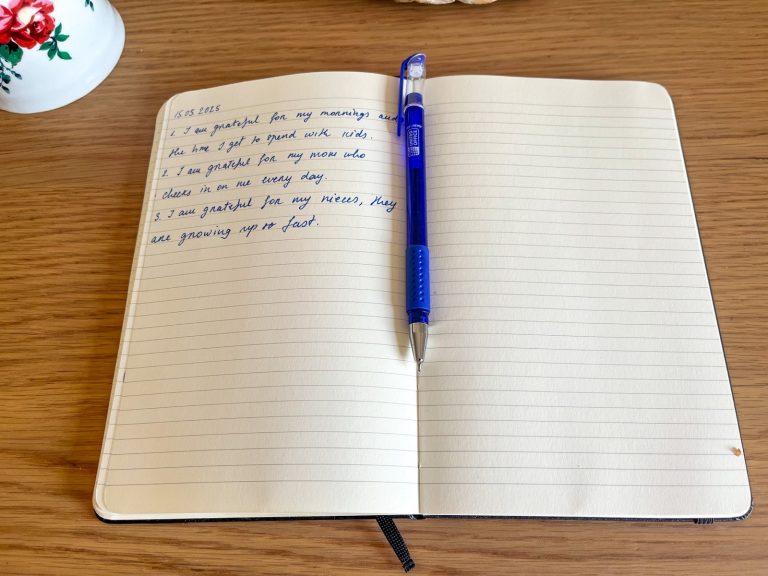 15.05.2025
1. I am grateful for my mornings and
the time I get to spend with kids.
2. I am grateful for my mom who
checks in on me every day.
3. I am grateful for my nieces, they
are growing up so fast.